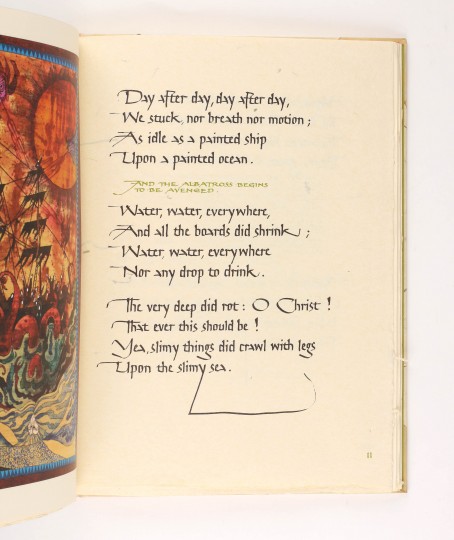 Day after day, day after day,
We stuck, nor breath nor motion;
As idle as a painted ship
Upon a painted ocean.
AND THE ALBATROSS BEGINS
TO BE AVENGED.
Water, water, everywhere,
And all the boards did shrink;
Water, water, everywhere
Nor any drop to drink.
The very deep did rot: O Christ!
That ever this should be!
Yea, slimy things did crawl with legs
Upon the slimy sea.
11